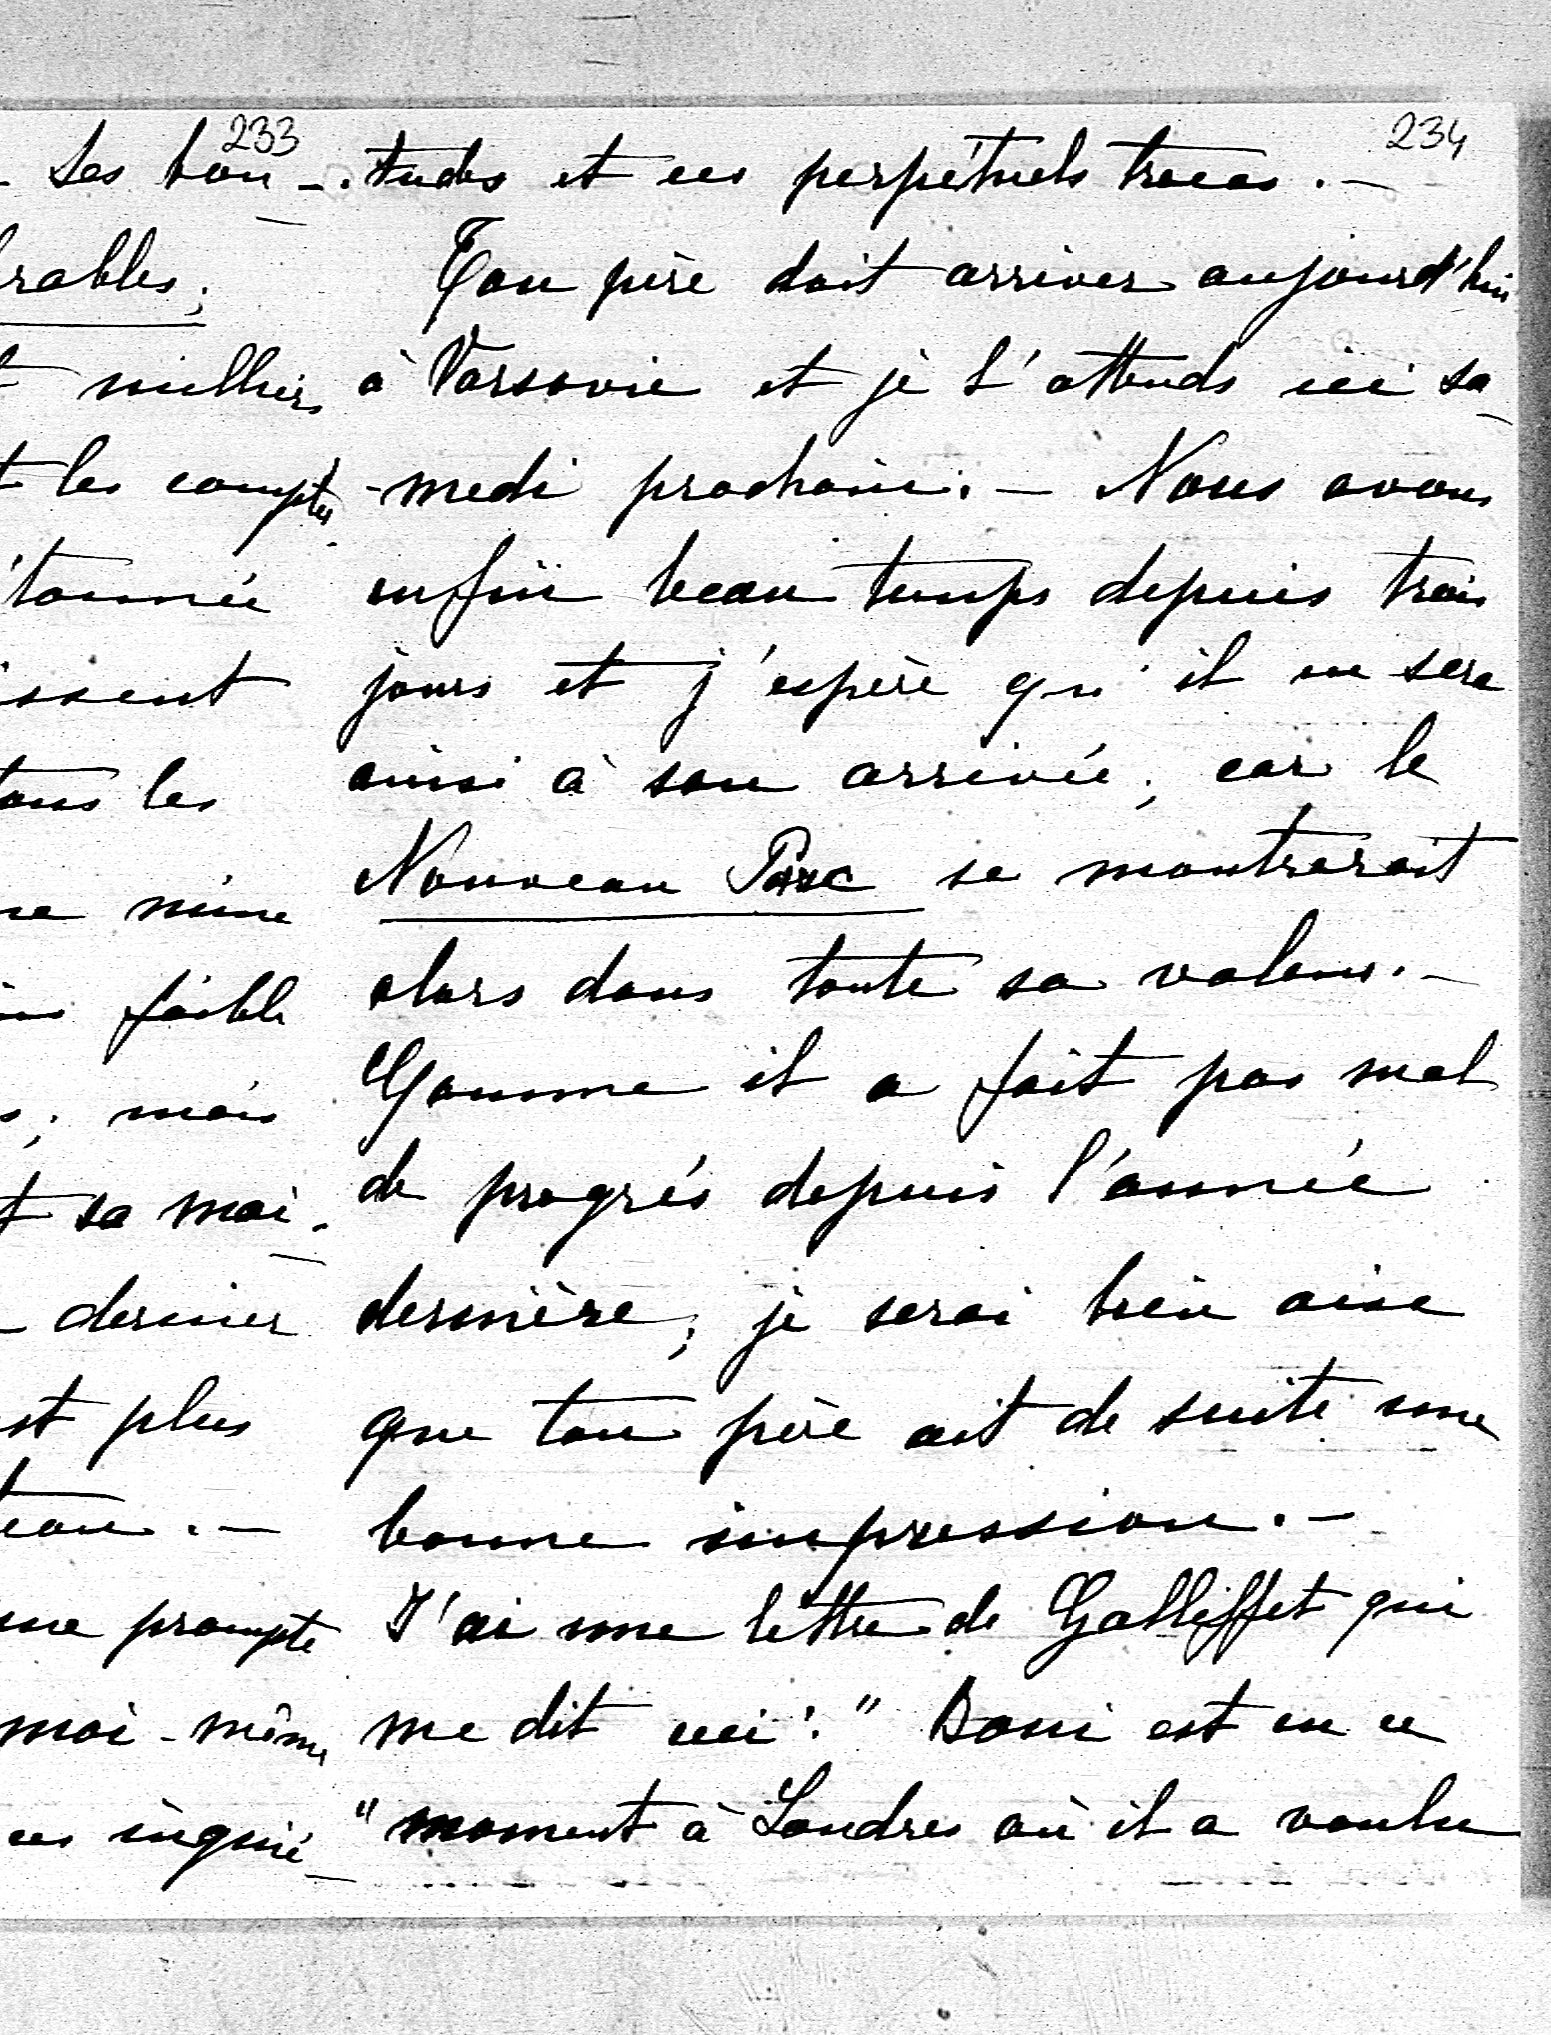 233
Ses bon-
rables;
t milliers
t les comptes
'tournée
issent
tous les
ne mine
ins faible
s; mais
t sa mai-
dernier
st plus
teau.-
une prompte
moi-même
ces inquié-
234
-tudes et ces perpétuels tracas.-
Ton père doit arriver aujourd'hui
à Varsovie et je l'attends ici sa-
-medi prochain.- Nous avons
enfin beau temps depuis trois
jours et j'espère qu'il en sera
ainsi à son arrivée; car le
Nouveau Parc se montrerait
alors dans toute sa valeur.-
Comme il a fait pas mal
de progrés depuis l'année
dernière; je serai bien aise
que ton père ait de suite une
bonne impression.-
J'ai une lettre de Galliffet qui
me dit ceci: " Boni est en ce
" moment à Londres où il a voulu